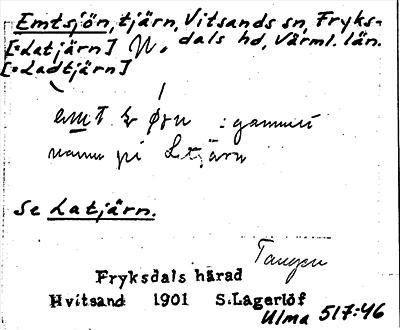 Emtsjön, tjärn, Vitsands sn, Fryks-
[=Latjärn] N. dals hd, Värml. län.
[=Ladtjärn]
: gammalt
namn på Ltjärn
Se Latjärn.
Tangen
Fryksdals härad
Hvitsand 1901 S.Lagerlöf
Ulma 517:46